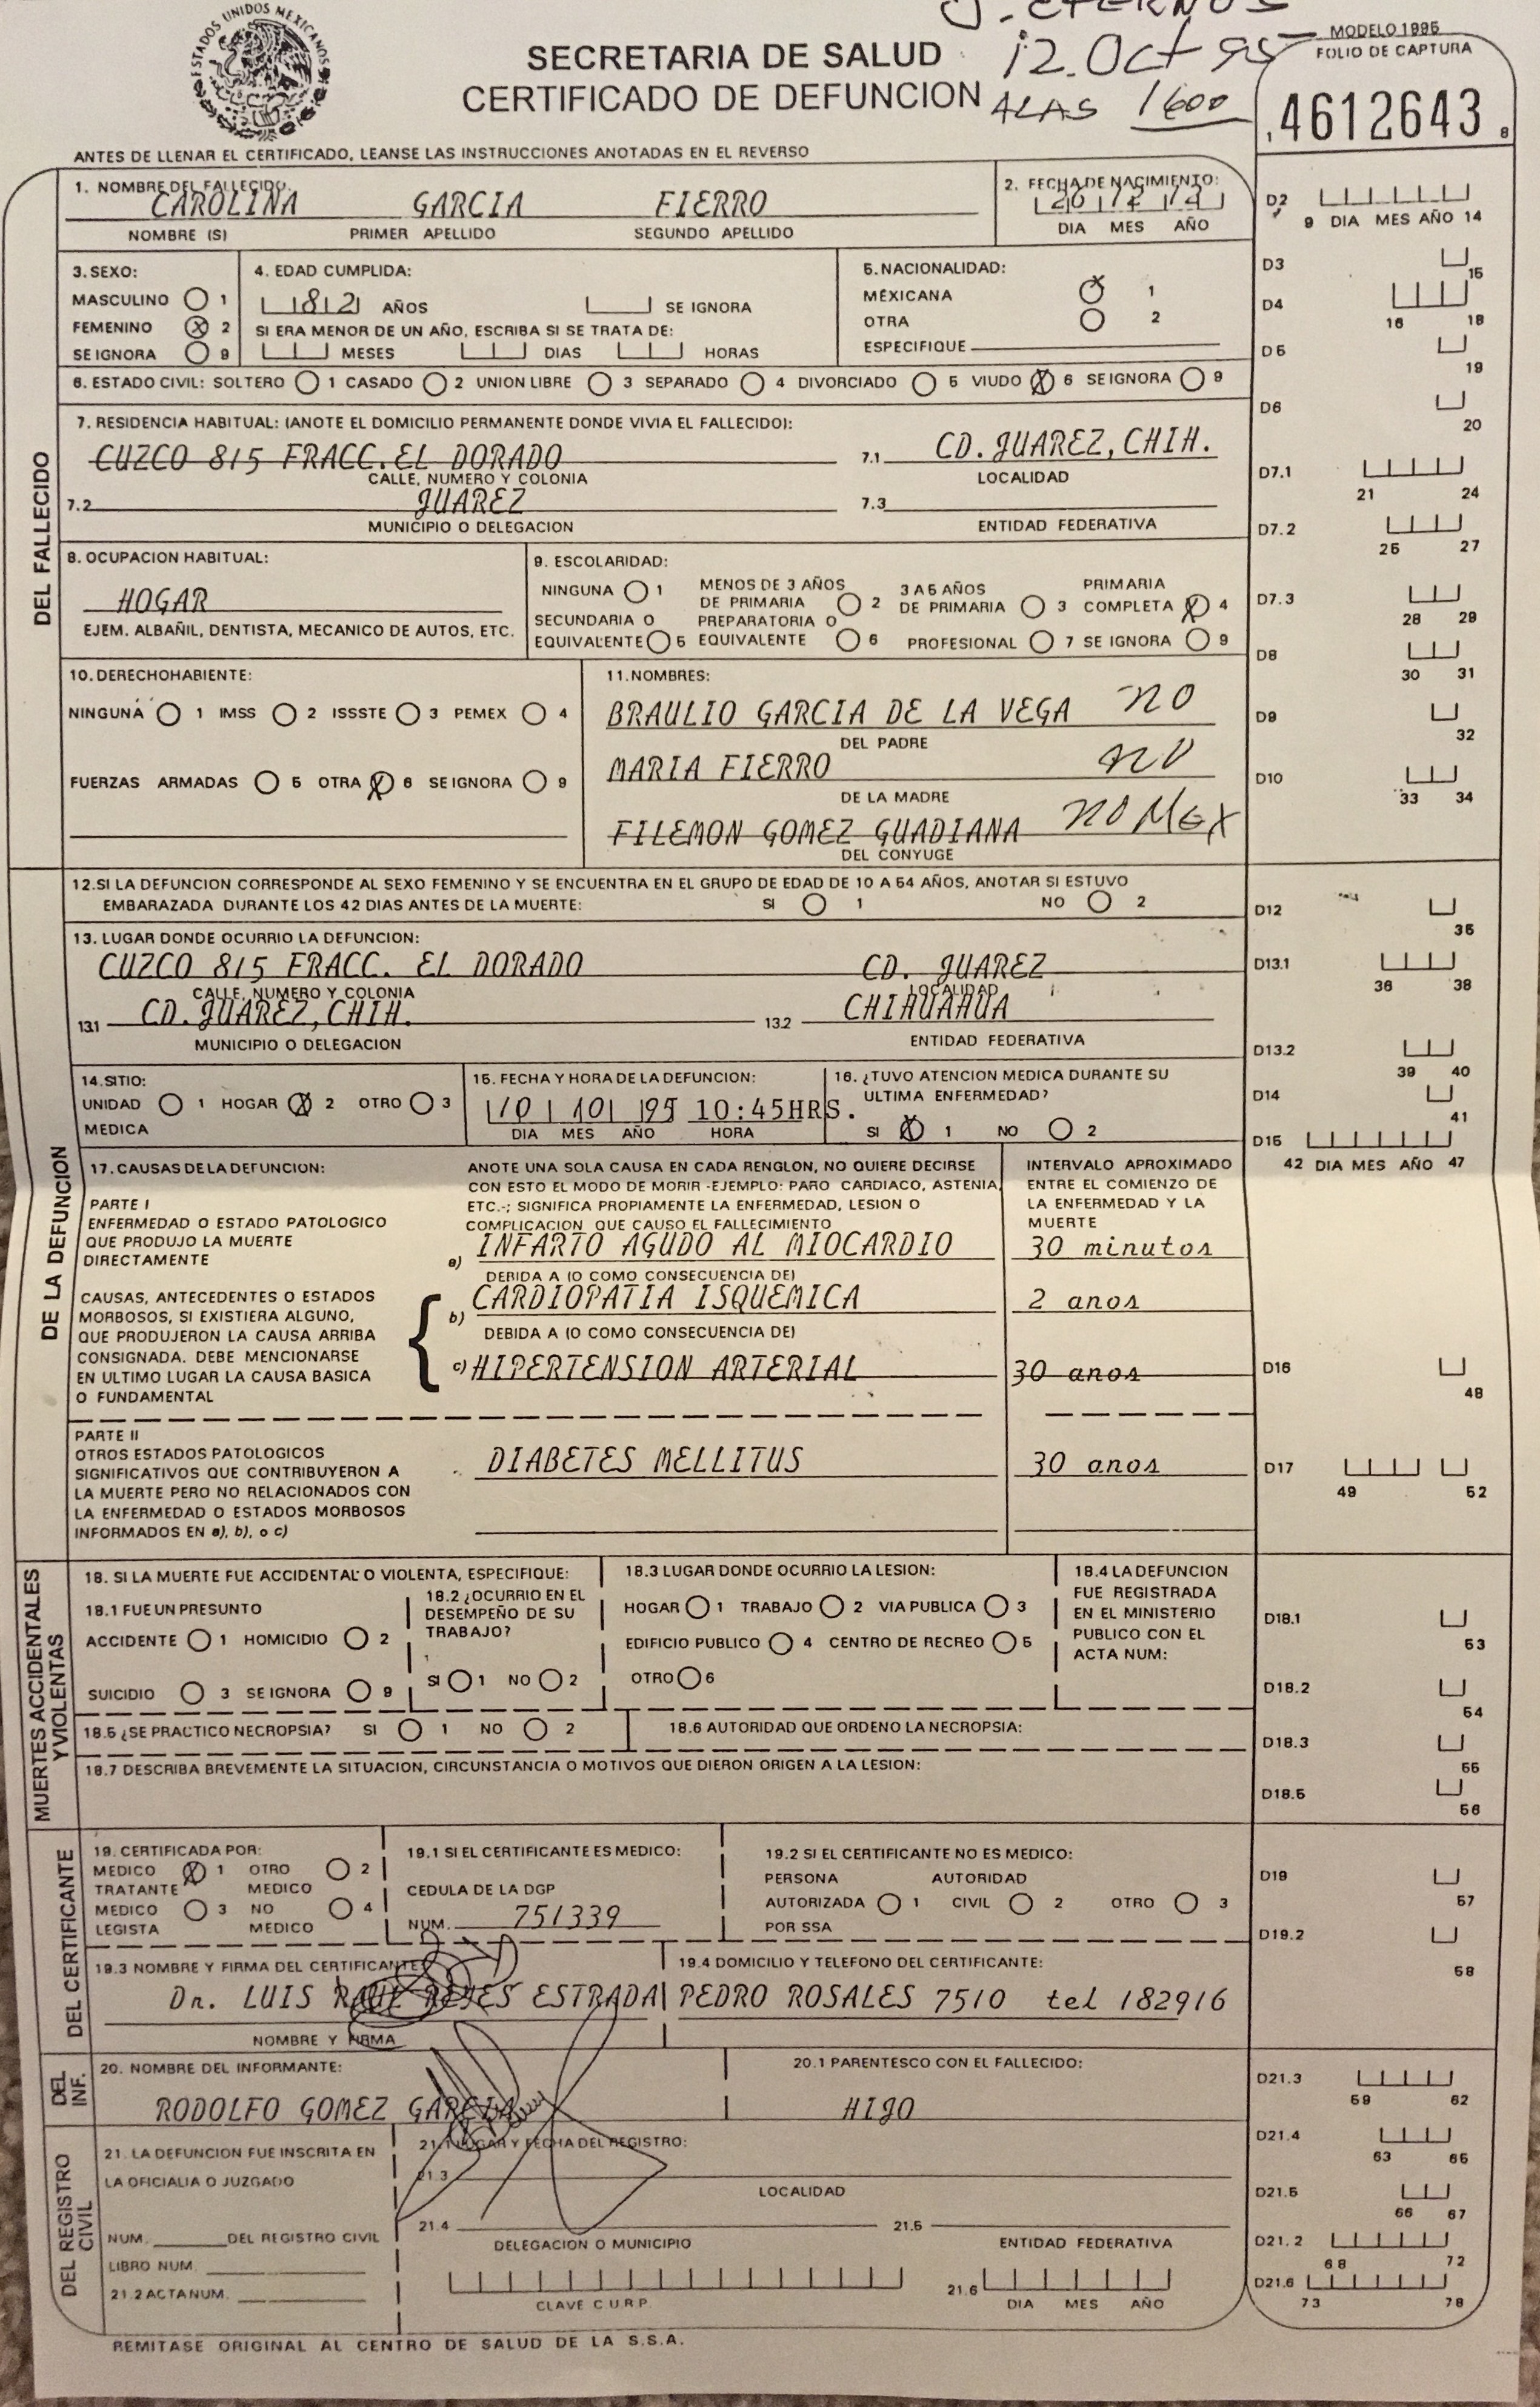 J. ETERNOS
ESTADOS UNIDOS MEXICANOS
SECRETARIA DE SALUD
12.Oct 95
MODELO 1995
FOLIO DE CAPTURA
CERTIFICADO DE DEFUNCION
ALAS 1600
4612643
ANTES DE LLENAR EL CERTIFICADO, LEANSE LAS INSTRUCCIONES ANOTADAS EN EL REVERSO
DEL FALLECIDO
1. NOMBRE DEL FALLECIDO:
CAROLINA GARCIA FIERRO
NOMBRE (S) PRIMER APELLIDO SEGUNDO APELLIDO
2. FECHA DE NACIMIENTO:
DIA MES AÑO
D2 9 DIA MES AÑO 14
3. SEXO:
MASCULINO 1
FEMENINO X 2
SE IGNORA 9
4. EDAD CUMPLIDA:
82 AÑOS SE IGNORA
SI ERA MENOR DE UN AÑO, ESCRIBA SI SE TRATA DE:
MESES DIAS HORAS
5. NACIONALIDAD:
MEXICANA X 1
OTRA 2
ESPECIFIQUE
D3 15
D4 16 18
D5 19
6. ESTADO CIVIL: SOLTERO 1 CASADO 2 UNION LIBRE 3 SEPARADO 4 DIVORCIADO 5 VIUDO X 6 SE IGNORA 9
D6 20
7. RESIDENCIA HABITUAL: (ANOTE EL DOMICILIO PERMANENTE DONDE VIVIA EL FALLECIDO):
CUZCO 815 FRACC. EL DORADO 7.1 CD. JUAREZ, CHIH.
CALLE, NUMERO Y COLONIA LOCALIDAD
7.2 JUAREZ 7.3
MUNICIPIO O DELEGACION ENTIDAD FEDERATIVA
D7.1 21 24
D7.2 25 27
8. OCUPACION HABITUAL:
HOGAR
EJEM. ALBAÑIL, DENTISTA, MECANICO DE AUTOS, ETC.
9. ESCOLARIDAD:
NINGUNA 1 MENOS DE 3 AÑOS DE PRIMARIA 2 3 A 5 AÑOS DE PRIMARIA 3 PRIMARIA COMPLETA X 4
SECUNDARIA O EQUIVALENTE 5 PREPARATORIA O EQUIVALENTE 6 PROFESIONAL 7 SE IGNORA 9
D7.3 28 29
D8 30 31
10. DERECHOHABIENTE:
NINGUNA 1 IMSS 2 ISSSTE 3 PEMEX 4
FUERZAS ARMADAS 5 OTRA X 6 SE IGNORA 9
11. NOMBRES:
BRAULIO GARCIA DE LA VEGA NO
DEL PADRE
MARIA FIERRO NO
DE LA MADRE
FILEMON GOMEZ GUADIANA NO MEX
DEL CONYUGE
D9 32
D10 33 34
DE LA DEFUNCION
12. SI LA DEFUNCION CORRESPONDE AL SEXO FEMENINO Y SE ENCUENTRA EN EL GRUPO DE EDAD DE 10 A 54 AÑOS, ANOTAR SI ESTUVO
EMBARAZADA DURANTE LOS 42 DIAS ANTES DE LA MUERTE: SI 1 NO 2
D12 35
13. LUGAR DONDE OCURRIO LA DEFUNCION:
CUZCO 815 FRACC. EL DORADO CD. JUAREZ
CALLE, NUMERO Y COLONIA LOCALIDAD
13.1 CD. JUAREZ, CHIH. 13.2 CHIHUAHUA
MUNICIPIO O DELEGACION ENTIDAD FEDERATIVA
D13.1 36 38
D13.2 39 40
14. SITIO:
UNIDAD MEDICA 1 HOGAR X 2 OTRO 3
15. FECHA Y HORA DE LA DEFUNCION:
10 10 95 10:45HRS.
DIA MES AÑO HORA
16. ¿TUVO ATENCION MEDICA DURANTE SU
ULTIMA ENFERMEDAD?
SI X 1 NO 2
D14 41
D15 42 DIA MES AÑO 47
17. CAUSAS DE LA DEFUNCION:
ANOTE UNA SOLA CAUSA EN CADA RENGLON, NO QUIERE DECIRSE
CON ESTO EL MODO DE MORIR -EJEMPLO: PARO CARDIACO, ASTENIA,
ETC.-; SIGNIFICA PROPIAMENTE LA ENFERMEDAD, LESION O
COMPLICACION QUE CAUSO EL FALLECIMIENTO
INTERVALO APROXIMADO
ENTRE EL COMIENZO DE
LA ENFERMEDAD Y LA
MUERTE
PARTE I
ENFERMEDAD O ESTADO PATOLOGICO
QUE PRODUJO LA MUERTE
DIRECTAMENTE
a) INFARTO AGUDO AL MIOCARDIO 30 minutos
DEBIDA A (O COMO CONSECUENCIA DE)
CAUSAS, ANTECEDENTES O ESTADOS
MORBOSOS, SI EXISTIERA ALGUNO,
QUE PRODUJERON LA CAUSA ARRIBA
CONSIGNADA. DEBE MENCIONARSE
EN ULTIMO LUGAR LA CAUSA BASICA
O FUNDAMENTAL
b) CARDIOPATIA ISQUEMICA 2 anos
DEBIDA A (O COMO CONSECUENCIA DE)
c) HIPERTENSION ARTERIAL 30 anos
D16 48
PARTE II
OTROS ESTADOS PATOLOGICOS
SIGNIFICATIVOS QUE CONTRIBUYERON A
LA MUERTE PERO NO RELACIONADOS CON
LA ENFERMEDAD O ESTADOS MORBOSOS
INFORMADOS EN a), b), o c)
DIABETES MELLITUS 30 anos
D17 49 52
MUERTES ACCIDENTALES
Y VIOLENTAS
18. SI LA MUERTE FUE ACCIDENTAL O VIOLENTA, ESPECIFIQUE:
18.1 FUE UN PRESUNTO
ACCIDENTE 1 HOMICIDIO 2
SUICIDIO 3 SE IGNORA 9
18.2 ¿OCURRIO EN EL
DESEMPEÑO DE SU
TRABAJO?
SI 1 NO 2
18.3 LUGAR DONDE OCURRIO LA LESION:
HOGAR 1 TRABAJO 2 VIA PUBLICA 3
EDIFICIO PUBLICO 4 CENTRO DE RECREO 5
OTRO 6
18.4 LA DEFUNCION
FUE REGISTRADA
EN EL MINISTERIO
PUBLICO CON EL
ACTA NUM:
D18.1 53
D18.2 54
18.5 ¿SE PRACTICO NECROPSIA? SI 1 NO 2
18.6 AUTORIDAD QUE ORDENO LA NECROPSIA:
D18.3 55
18.7 DESCRIBA BREVEMENTE LA SITUACION, CIRCUNSTANCIA O MOTIVOS QUE DIERON ORIGEN A LA LESION:
D18.5 56
DEL CERTIFICANTE
19. CERTIFICADA POR:
MEDICO TRATANTE X 1 OTRO MEDICO 2
MEDICO LEGISTA 3 NO MEDICO 4
19.1 SI EL CERTIFICANTE ES MEDICO:
CEDULA DE LA DGP
NUM. 751339
19.2 SI EL CERTIFICANTE NO ES MEDICO:
PERSONA AUTORIZADA POR SSA 1 AUTORIDAD CIVIL 2 OTRO 3
D19 57
D19.2 58
19.3 NOMBRE Y FIRMA DEL CERTIFICANTE
Dr. LUIS RAUL REYES ESTRADA
NOMBRE Y FIRMA
19.4 DOMICILIO Y TELEFONO DEL CERTIFICANTE:
PEDRO ROSALES 7510 tel 182916
DEL INF.
20. NOMBRE DEL INFORMANTE:
RODOLFO GOMEZ GARCIA
20.1 PARENTESCO CON EL FALLECIDO:
HIJO
D21.3 59 62
DEL REGISTRO
CIVIL
21. LA DEFUNCION FUE INSCRITA EN
LA OFICIALIA O JUZGADO
NUM. DEL REGISTRO CIVIL
LIBRO NUM.
21.2 ACTA NUM.
21.1 LUGAR Y FECHA DEL REGISTRO:
21.3
LOCALIDAD
21.4 21.5
DELEGACION O MUNICIPIO ENTIDAD FEDERATIVA
21.6
CLAVE C.U.R.P. DIA MES AÑO
D21.4 63 65
D21.5 66 67
D21.2 68 72
D21.6 73 78
REMITASE ORIGINAL AL CENTRO DE SALUD DE LA S.S.A.